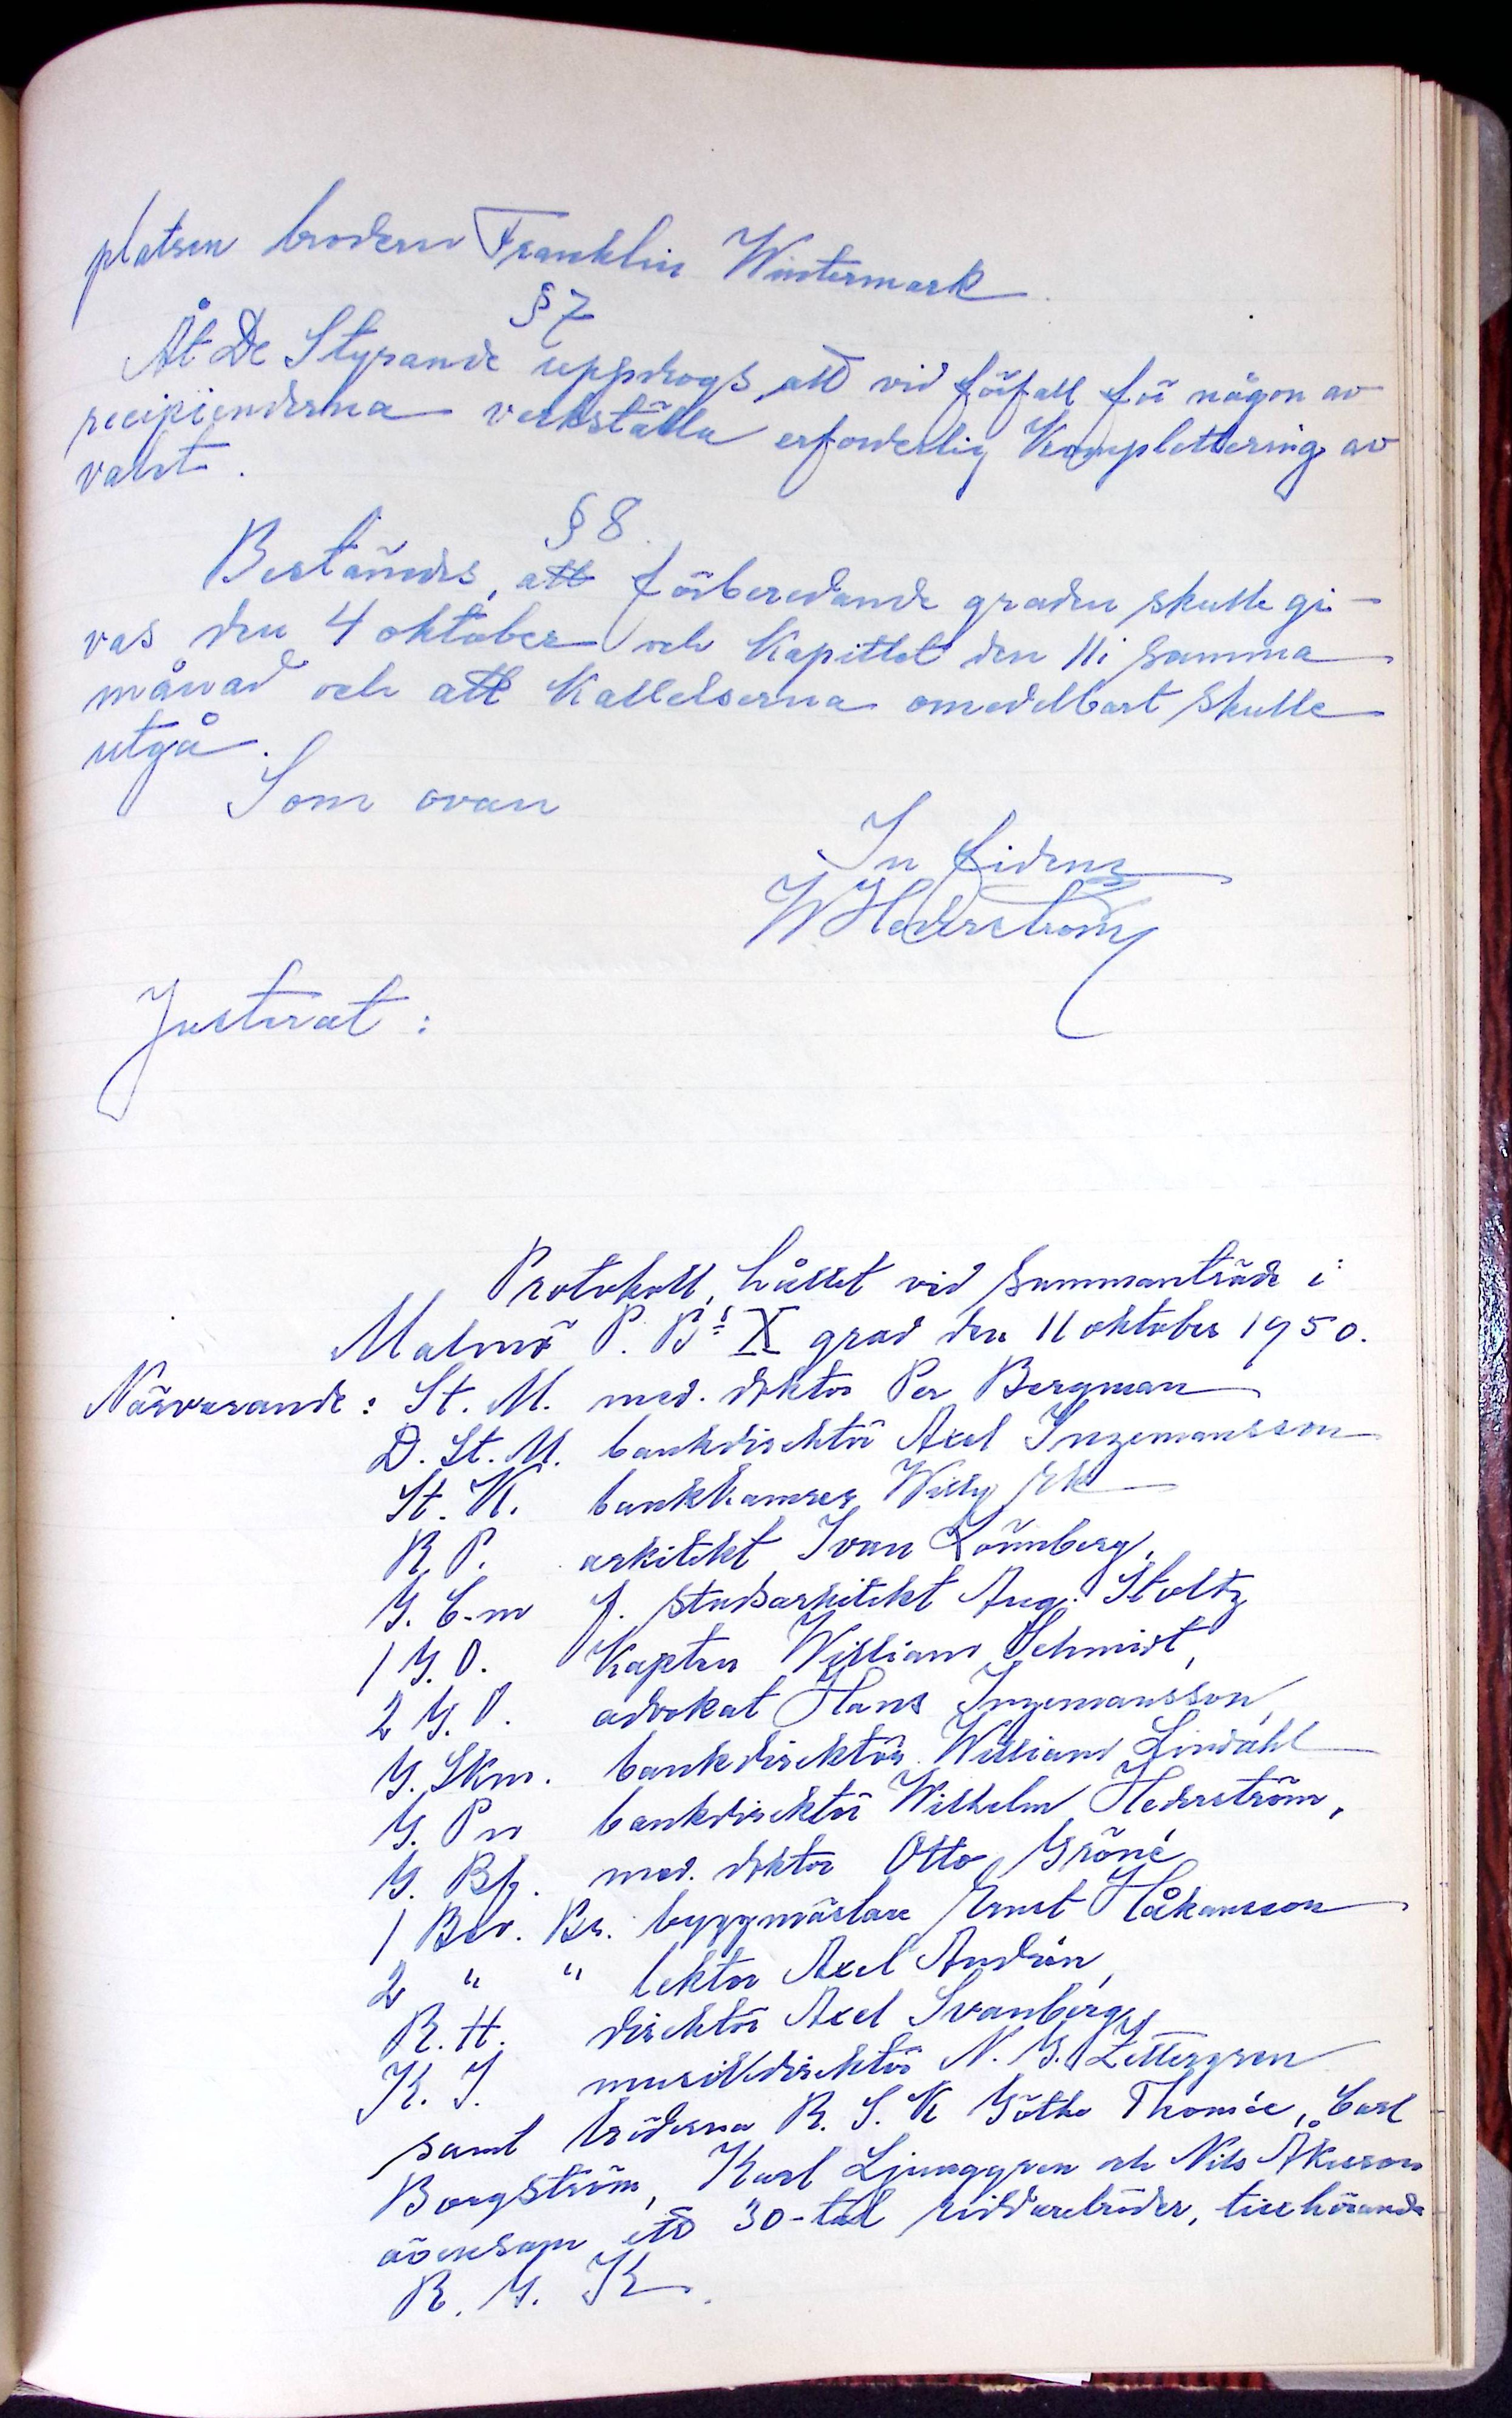 platsen brodern Franklin Wintermark.
§ 7
Åt De Styrande uppdrogs att vid förfall för någon av
recipienderna verkställa erforderlig komplettering av
valet.
§ 8.
Bestämdes, att förberedande graden skulle gi-
vas den 4 oktober och Kapitlet den 11 i samma
månad och att kallelserna omedelbart skulle
utgå.
Som ovan
In fidem
W Hederström
Justerat:
Protokoll, hållet vid sammanträde i
Malmö P. B:s X grad den 11 oktober 1950.
Närvarande: St. M. med. doktor Per Bergman
D. St. M. bankdirektör Axel Ingemansson
St. K. bankkamrer Willy Ek
R. P. arkitekt Ivan Lönnberg,
G. C-m f. stadsarkitekt Aug. Stoltz
1 G. O. Kapten William Schmidt,
2 G. O. advokat Hans Ingemansson,
G. Skm. bankdirektör William Lindahl
G. Pn bankdirektör Wilhelm Hederström,
G. Bf. med. doktor Otto Gröné
1 Bev. Br. byggmästare Ernst Håkansson
2 " " lektor Axel Andrén,
R. H. direktör Axel Svanberg,
K. I. musikdirektör N. G. Zettergren
samt bröderna R. S. K Göthe Thomée, Carl
Borgström, Karl Ljunggren och Nils Åkesson
ävensom ett 30-tal riddarebröder, tillhörande
R. G. K.